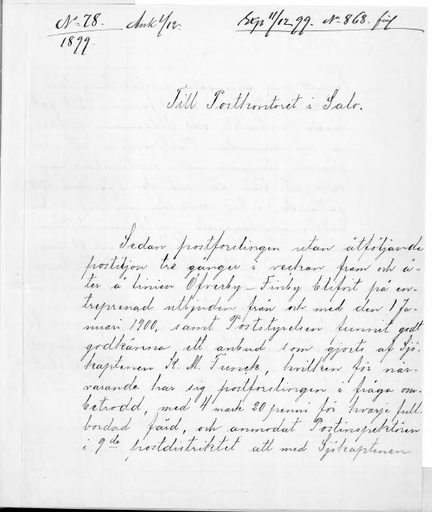 No 78. Ank 1/12. Exp 11/12 99. No 868.
1899.
Till Postkontoret i Salo.
Sedan postforslingen utan åtföljande
postiljon tre gånger i veckan fram och å-
ter å linien Öfverby–Finby blifvit på en-
treprenad utbjuden från och med den 1 Ja-
nuari 1900, samt Poststyrelsen funnit godt
godkänna ett anbud som gjorts af Sjö-
kaptenen K. M. Funck, hvilken för när-
varande har sig postforslingen i fråga om-
betrodd, med 4 mark 20 penni för hvarje full-
bordad färd, och anmodat Postinspektören
i 9de postdistriktet att med Sjökaptenen